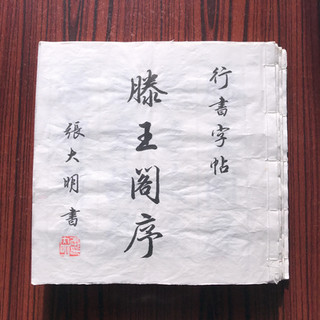 行書字帖
滕王閣序
張大明書